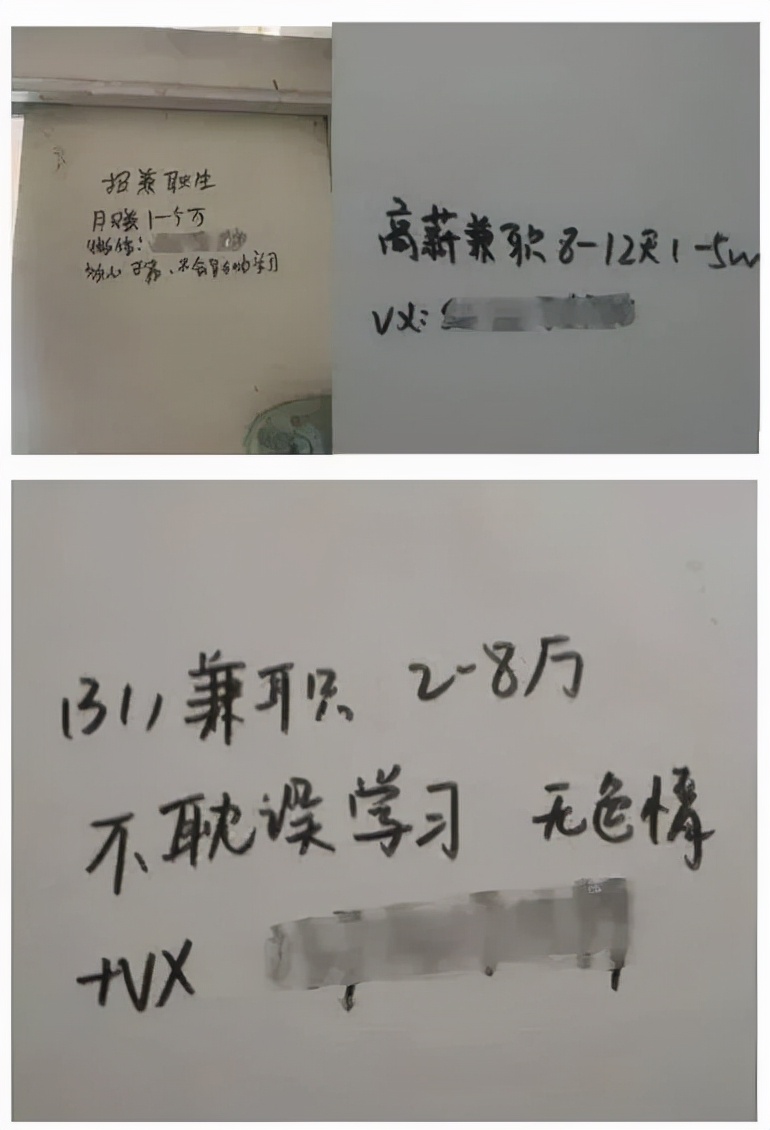 招兼职生
月赚1一个万
微信:
放心可靠、不会影响学习
高薪兼职8-12天1-5w
VX:
兼职 2-8万
不耽误学习 无色情
+VX